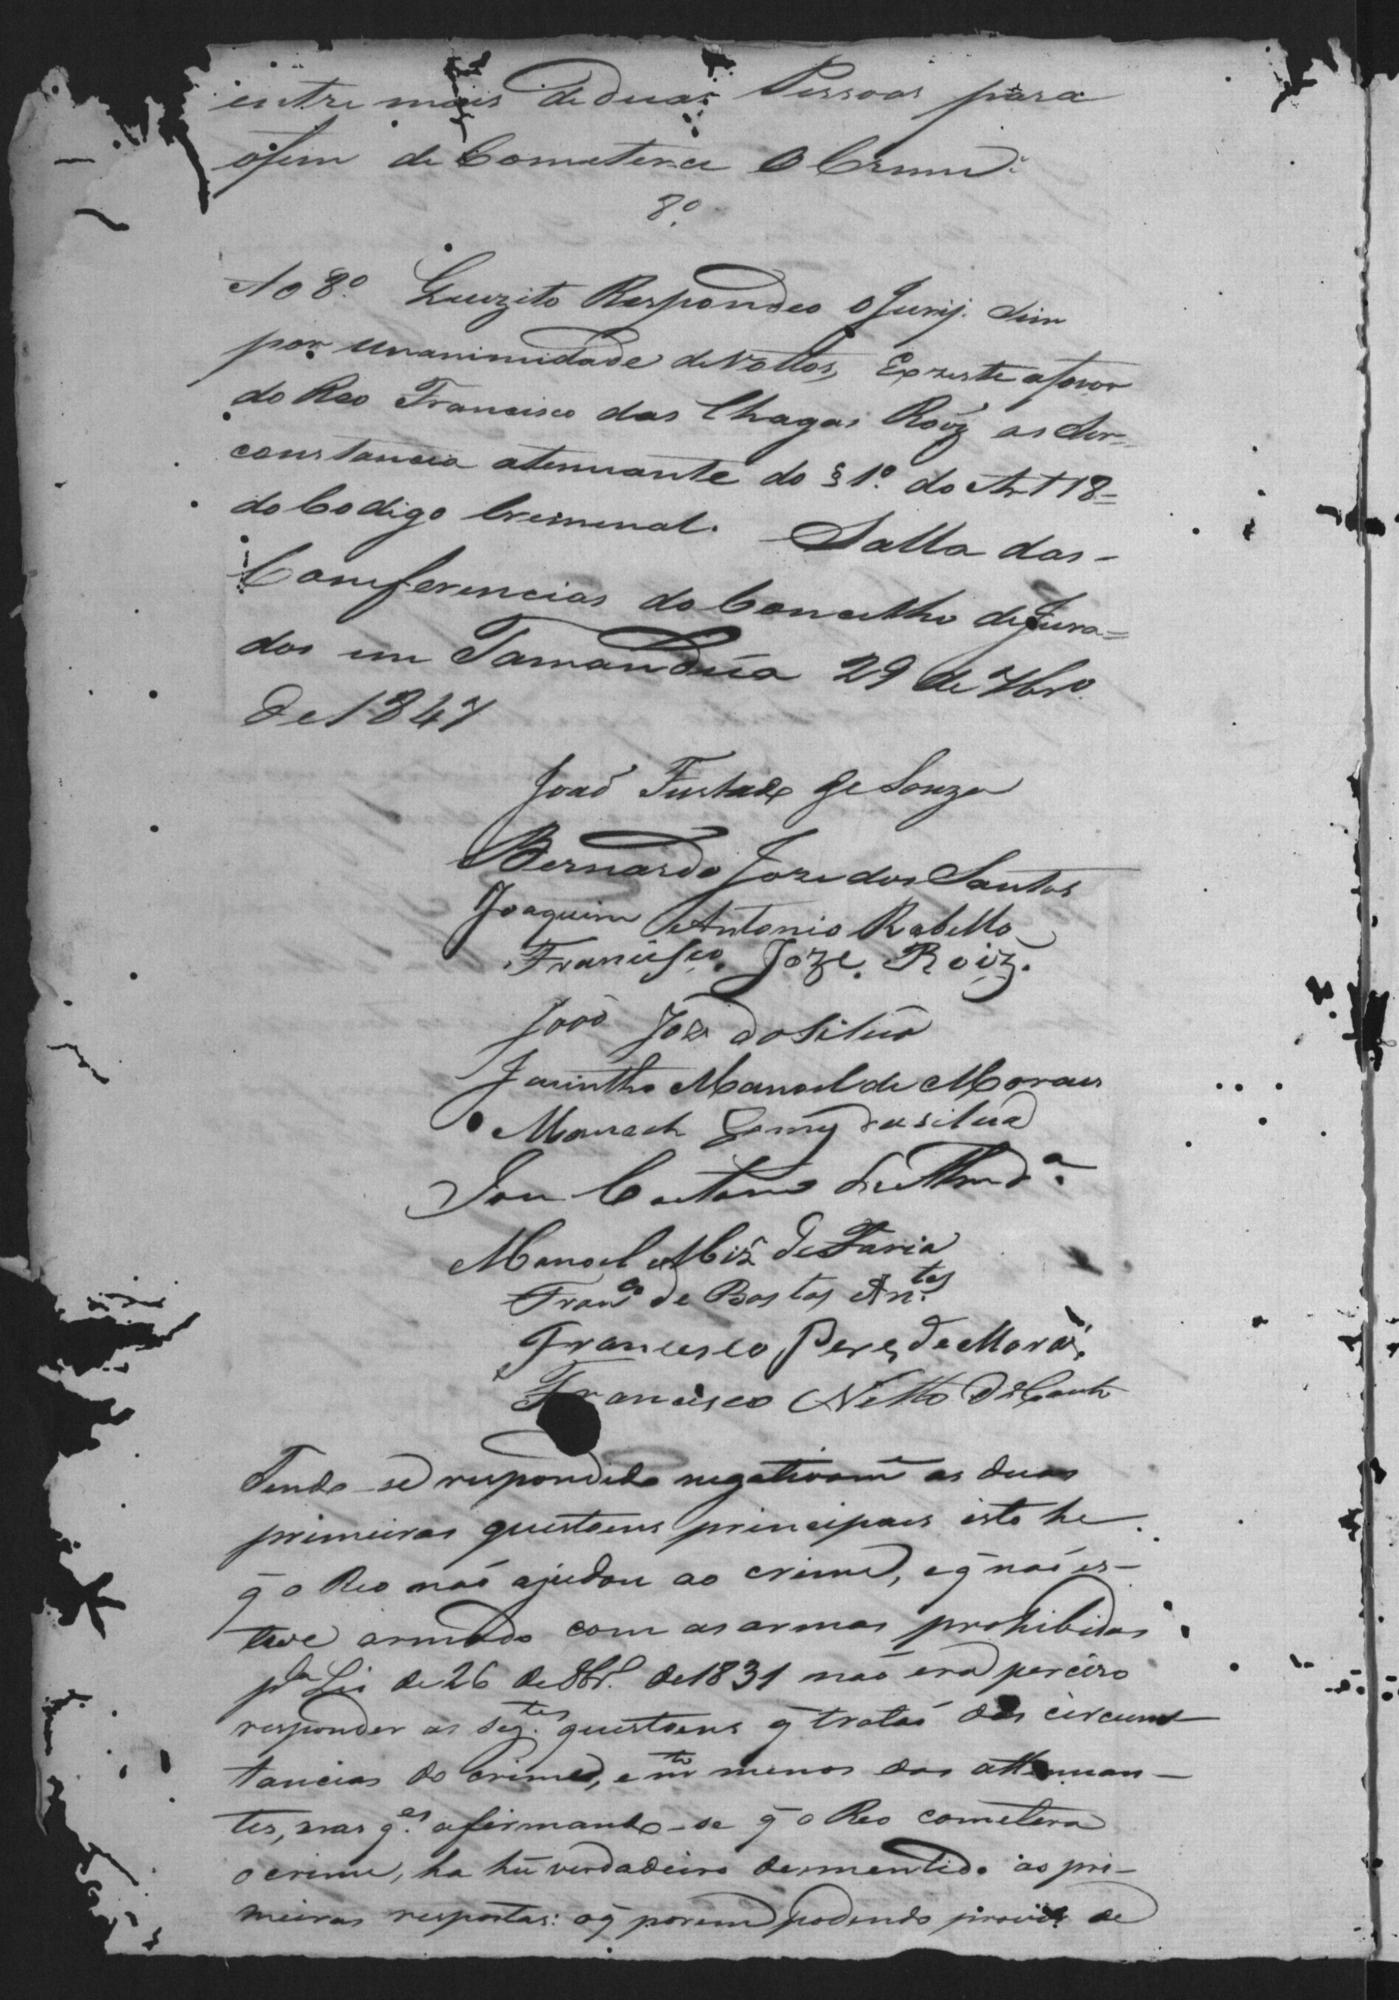 entre mais de duas Pessoas para
o fim de Cometerce O Crime.
8º
Ao 8º. Quezito Respondeo o Jury. Sim
por unanimidade de Vottos, Exziste afavor
do Reo Francisco das Chagas Roiz as Cir=
constancia atenuante do § 1º. do Art 18=
do Codigo Creminal. Salla das-
Conferencias do Concelho de Jura=
dos em Tamanduá 29 de 7bro.
de 1847
João Furtado de Souza
Bernardo Joze dos Santos
Joaquim Antonio Rabello
Francisco. Joze. Roiz.
João Joze da Silva
Jacintho Manoel de Moraes
Manoel Gomes da Silva
Caetano de Almda.
Manoel Miz de Faria
Franco de Bastos Antes
Francisco Peres de Morais
Francisco Netto do Couto
Tendo-se respondido negativame as duas
primeiras questoens principaes isto he
q̃ o Reo não ajudou ao crime, e q̃ não es-
teve armado com as armas prohibidas
pla Lei de 26 de 8br. de 1831 não era percizo
responder as segtes. questoens q̃ tratão das circuns
tancias do crime, e mto menos das attenuan-
tes, nas qes. afirmando-se q̃ o Reo cometera
o crime, ha hũ verdadeiro desmentido as pri-
meiras respostas: o q̃ porem podendo provir de